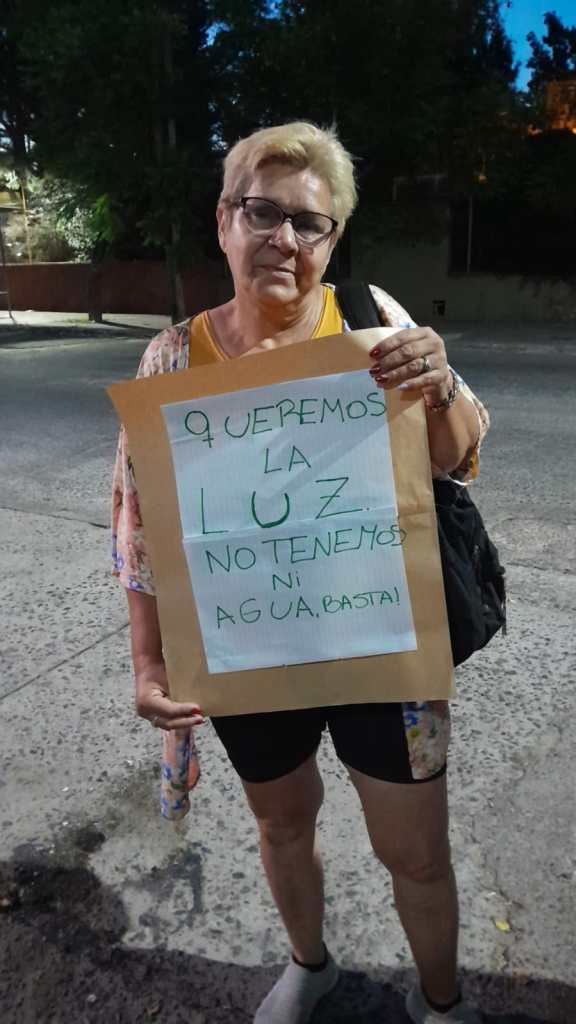 QUEREMOS
LA
LUZ.
NO TENEMOS
Ni
AGUA, BASTA!